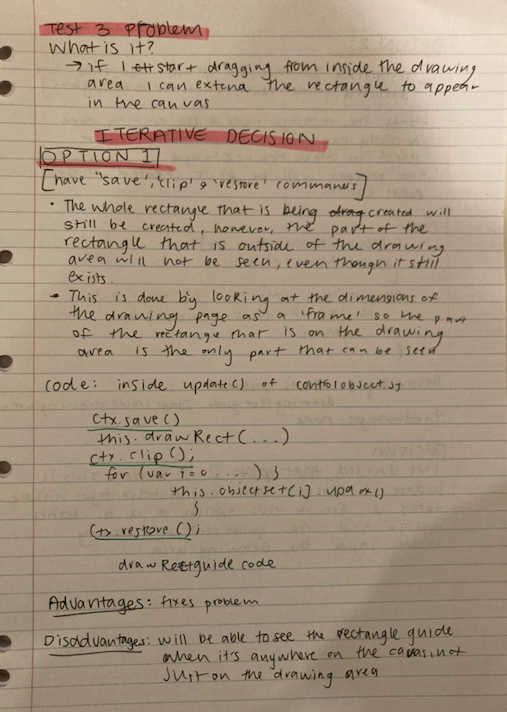 Test 3 Problem
What is it?
→ if I start dragging from inside the drawing
area I can extend the rectangle to appear
in the canvas
ITERATIVE DECISION
OPTION 1
[have "save", 'clip' & 'restore' commands]
• The whole rectangle that is being drag created will
still be created, however, the part of the
rectangle that is outside of the drawing
area will not be seen, even though it still
exists.
• This is done by looking at the dimensions of
the drawing page as a 'frame' so the part
of the rectange that is on the drawing
area is the only part that can be seen
code: inside update() of controlobject.js
ctx.save()
this.drawRect(...)
ctx.clip();
for (var i=0 ....) {
this.objectset[i].update()
}
ctx.restore();
drawRectguide code
Advantages: fixes problem
Disadvantages: will be able to see the rectangle guide
when it's anywhere on the canvas, not
just on the drawing area